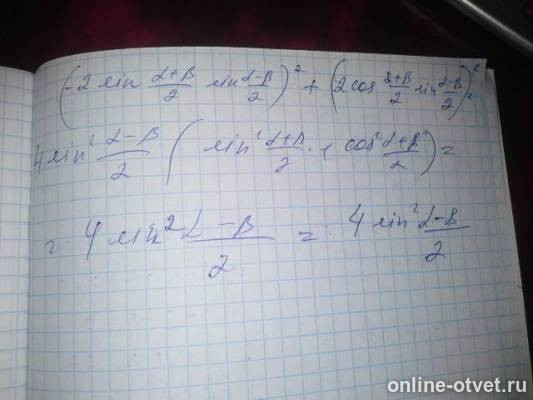 (-2 sin α+β/2 sin α-β/2)² + (2 cos α+β/2 sin α-β/2)²
4 sin² α-β/2 (sin² α+β/2 + cos² α+β/2) =
= 4 sin² α-β/2 = 4 sin² α-β/2
online-otvet.ru